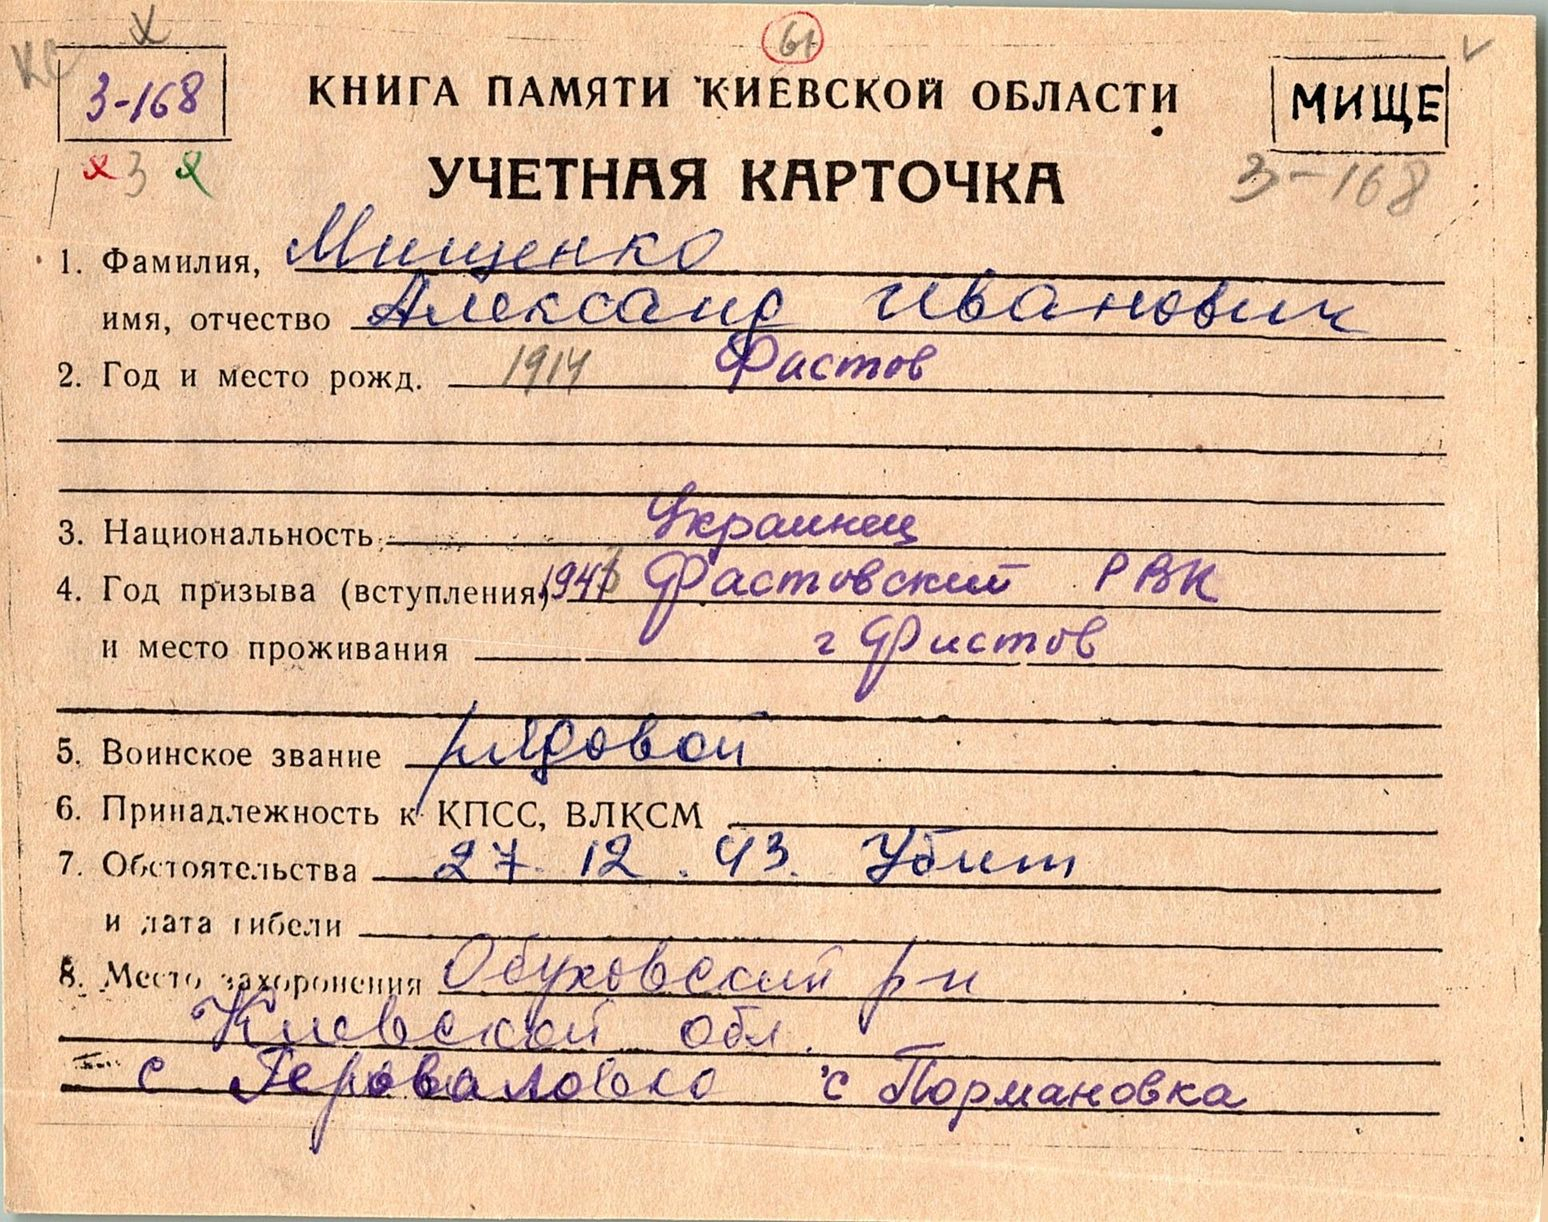 КС
61
3-168
КНИГА ПАМЯТИ КИЕВСКОЙ ОБЛАСТИ
МИЩЕ
3
УЧЕТНАЯ КАРТОЧКА
3-168
1. Фамилия, Мищенко
имя, отчество Александр Иванович
2. Год и место рожд. 1914 Фастов
3. Национальность Украинец
4. Год призыва (вступления) Фастовский РВК
и место проживания г Фастов
5. Воинское звание рядовой
6. Принадлежность к КПСС, ВЛКСМ
7. Обстоятельства 27.12.43. Убит
и дата гибели
8. Место захоронения Обуховский р-н
Киевской обл.
с с Пормановка